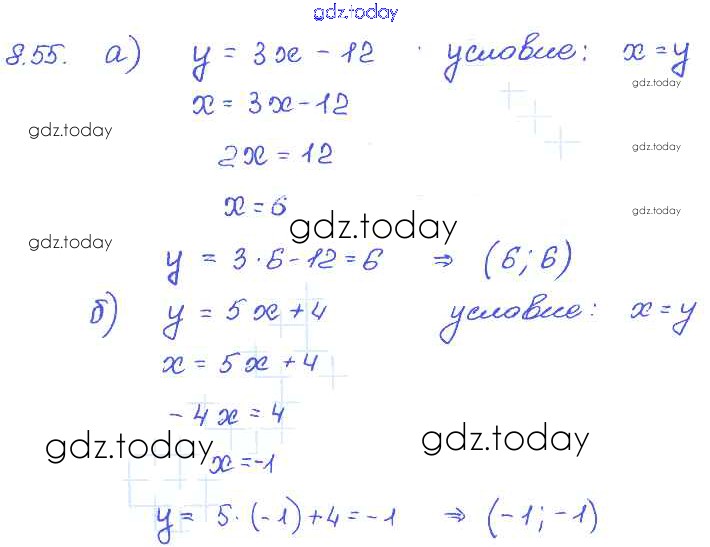 gdz.today
8.55. а) y = 3x - 12 условие: x = y
gdz.today
x = 3x - 12
gdz.today
2x = 12
gdz.today
x = 6
gdz.today
gdz.today
gdz.today
y = 3 · 6 - 12 = 6 ⇒ (6; 6)
б) y = 5x + 4 условие: x = y
x = 5x + 4
- 4x = 4
gdz.today
gdz.today
x = -1
y = 5 · (-1) + 4 = -1 ⇒ (-1; -1)